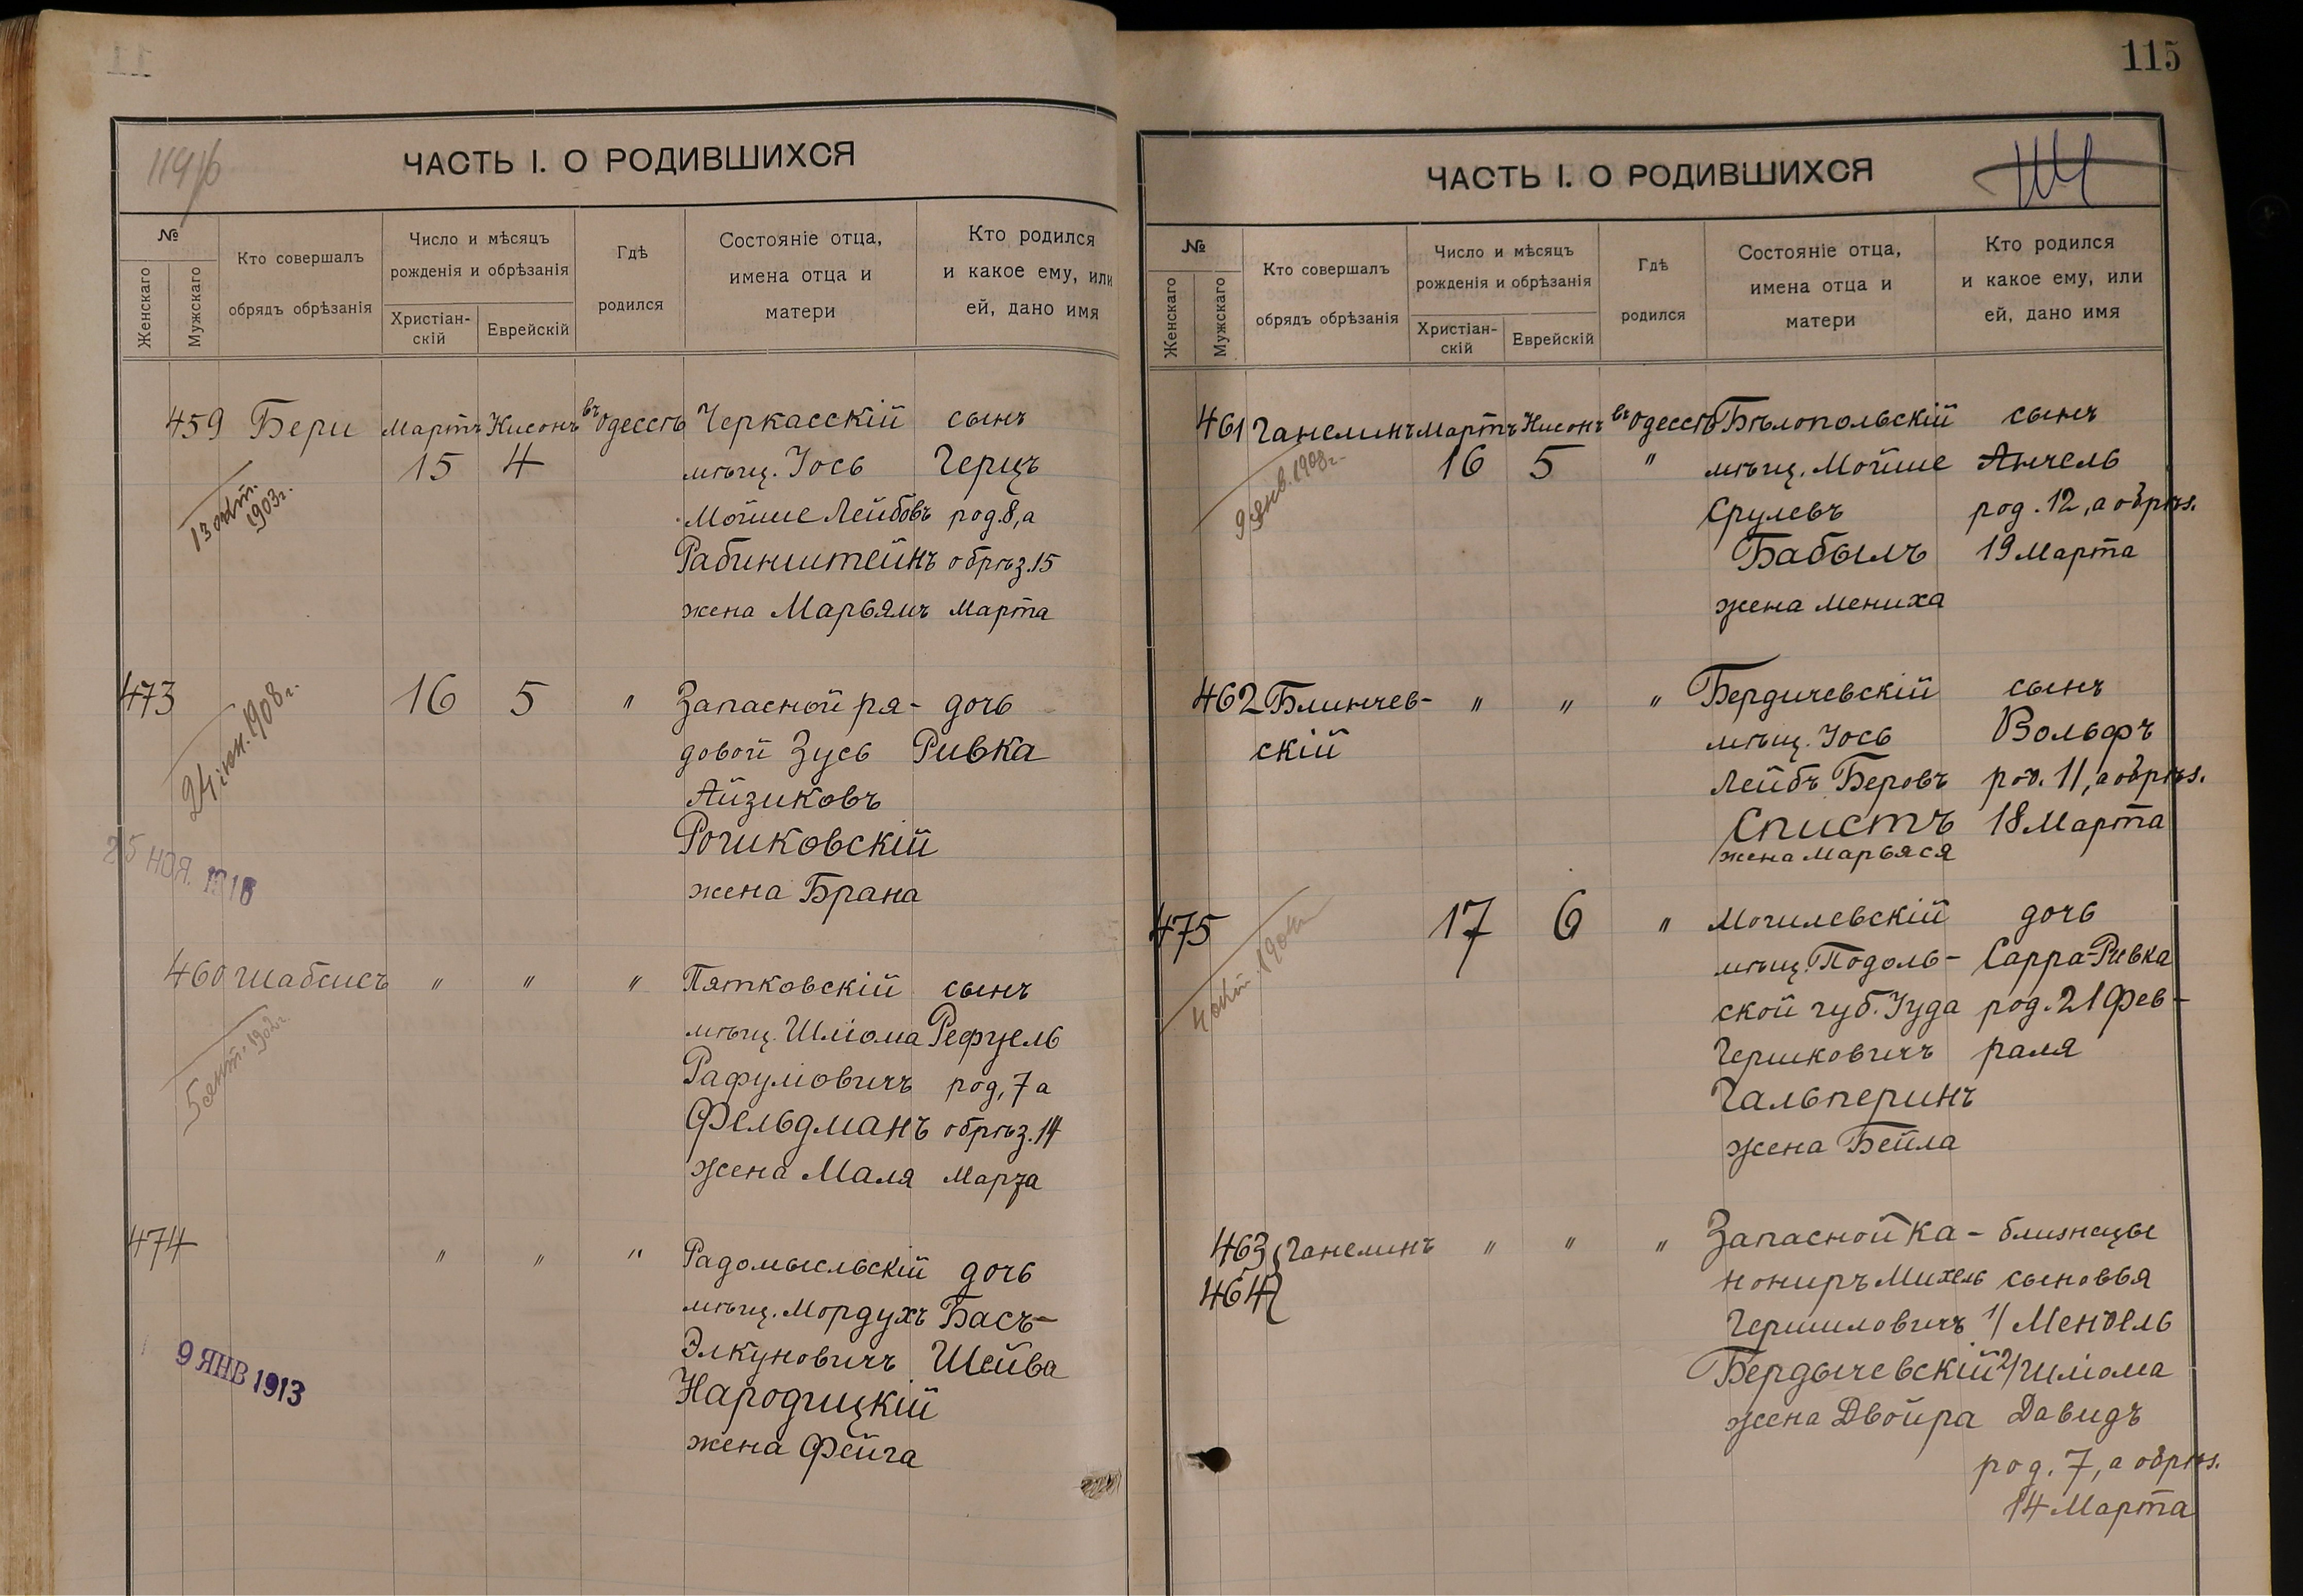 ЧАСТЬ I. О РОДИВШИХСЯ
№
Женскаго
Мужскаго
Кто совершалъ
обрядъ обрѣзанія
Число и мѣсяцъ
рожденія и обрѣзанія
Христіан-
скій
Еврейскій
Гдѣ
родился
Состояніе отца,
имена отца и
матери
Кто родился
и какое ему, или
ей, дано имя
459 Бери Мартъ Нисонъ въ Одессѣ Черкасскій сынъ
15 4 мѣщ. Іось Герцъ
Мойше Лейбовъ род. 8, а
Рабинштейнъ обрѣз. 15
жена Марьямъ марта
13 окт.
1903 г.
473 16 5 " Запасной ря- дочь
довой Зусь Ривка
Айзиковъ
Рочиковскій
жена Брана
24 іюн. 1908 г.
460 Шабсисъ " " " Пятковскій сынъ
мѣщ. Шліома Рефуель
Рафуловичъ род, 7 а
Фельдманъ обрѣз. 14
жена Маля Марта
5 сент. 1902 г.
474 " " " Радомысльскій дочь
мѣщ. Мордухъ Басъ-
Элкуновичъ Шейва
Народицкій
жена Фейга
9 ЯНВ 1913
115
ЧАСТЬ I. О РОДИВШИХСЯ
№
Женскаго
Мужскаго
Кто совершалъ
обрядъ обрѣзанія
Число и мѣсяцъ
рожденія и обрѣзанія
Христіан-
скій
Еврейскій
Гдѣ
родился
Состояніе отца,
имена отца и
матери
Кто родился
и какое ему, или
ей, дано имя
461 Ганелинъ Мартъ Нисонъ въ Одессѣ Бѣлопольскій сынъ
16 5 " мѣщ. Мойше Анчель
Срулевъ род. 12, а обрѣз.
Бабылъ 19 Марта
жена Мениха
9 янв. 1908 г.
462 Блинчев- " " " Бердичевскій сынъ
скій мѣщ. Іось Вольфъ
Лейбъ Беровъ род. 11, а обрѣз.
Спистъ 18 Марта
жена Марьяся
475 17 6 " Могилевскій дочь
мѣщ. Подоль- Сарра-Ривка
ской губ. Іуда род. 21 Фев-
Гершковичъ раля
Гальперинъ
жена Бейла
4 окт.
463 Ганелинъ " " " Запасной ка- близнецы
464 нониръ Михель сыновья
Гершиловичъ 1/ Мендель
Бердычевскій 2/ Шліома
жена Двойра Давидъ
род. 7, а обрѣз.
14 Марта